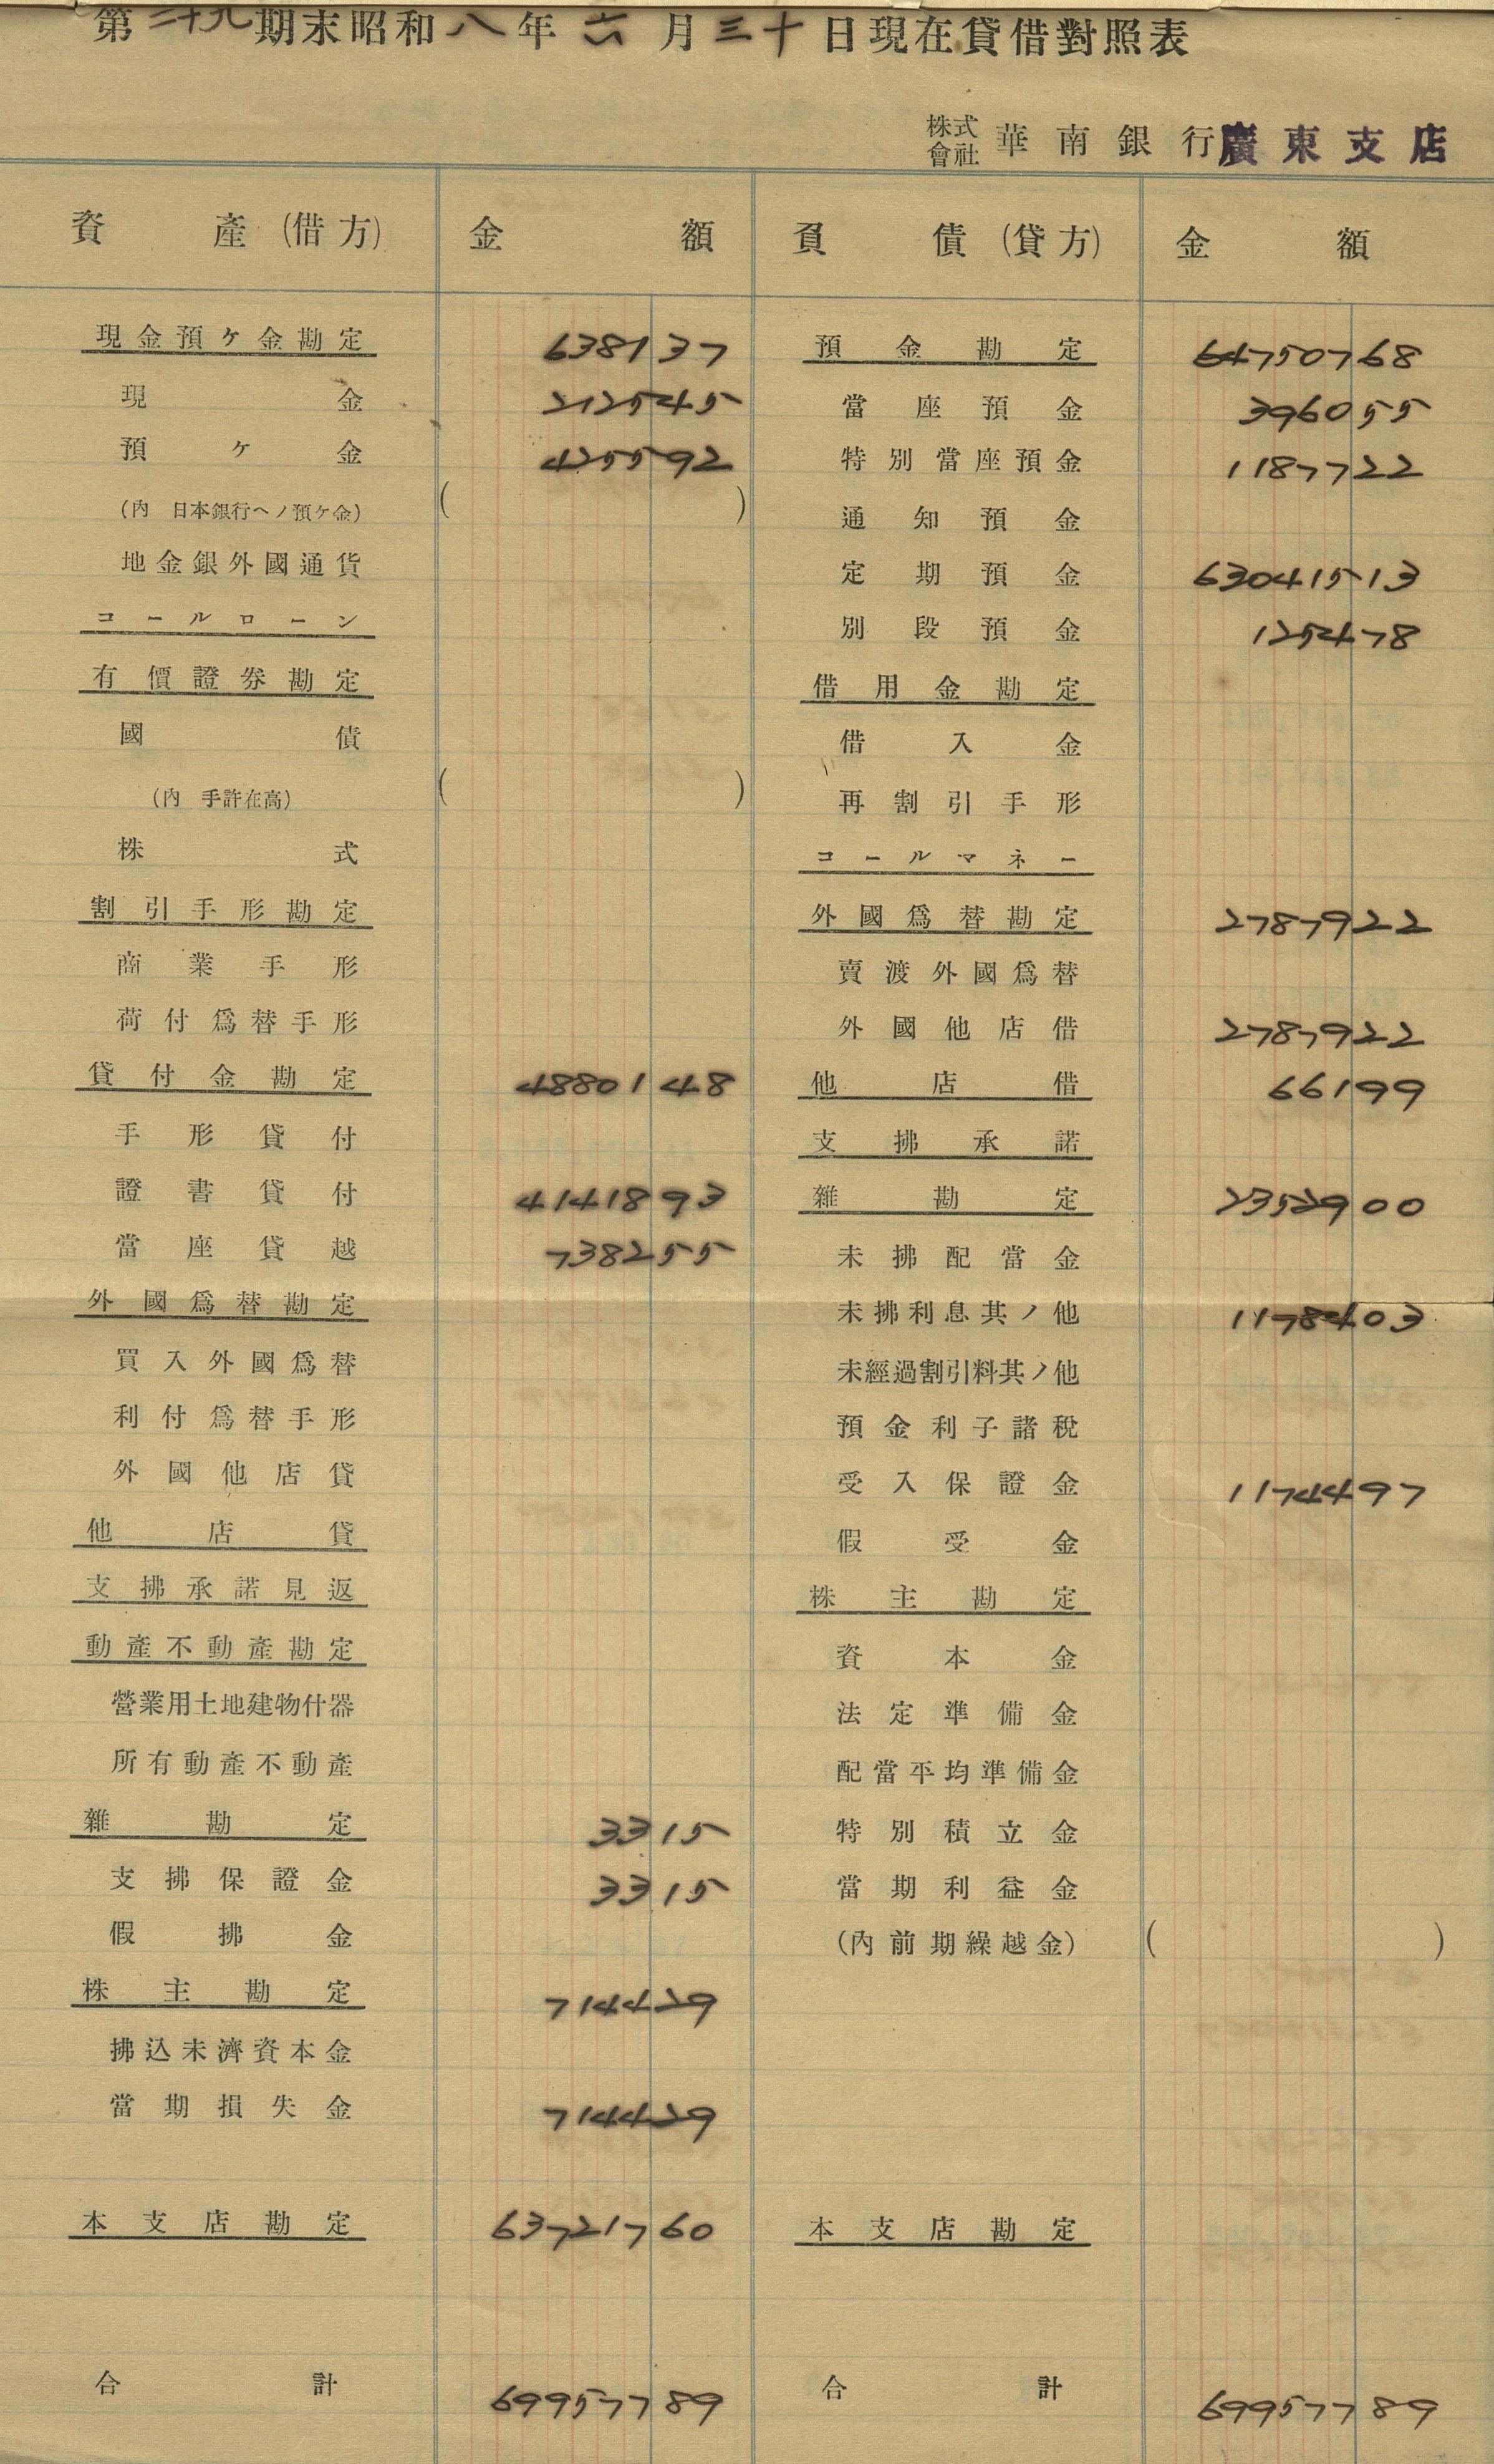 第二十九期末昭和八年六月三十日現在貸借對照表
株式會社 華南銀行廣東支店
資產(借方) 金額 負債(貸方) 金額
現金預ケ金勘定 638137
現金 212545
預ケ金 425592
(內 日本銀行ヘノ預ケ金) ( )
地金銀外國通貨
コールローン
有價證券勘定
國債
(內 手許在高) ( )
株式
割引手形勘定
商業手形
荷付爲替手形
貸付金勘定 4880148
手形貸付
證書貸付 4141893
當座貸越 738255
外國爲替勘定
買入外國爲替
利付爲替手形
外國他店貸
他店貸
支拂承諾見返
動產不動產勘定
營業用土地建物什器
所有動產不動產
雜勘定 3315
支拂保證金 3315
假拂金
株主勘定 714429
拂込未濟資本金
當期損失金 714429
本支店勘定 63721760
合計 69957789
預金勘定 64750768
當座預金 396055
特別當座預金 1187722
通知預金
定期預金 63041513
別段預金 125478
借用金勘定
借入金
再割引手形
コールマネー
外國爲替勘定 2787922
賣渡外國爲替
外國他店借 2787922
他店借 66199
支拂承諾
雜勘定 2352900
未拂配當金
未拂利息其ノ他 1178403
未經過割引料其ノ他
預金利子諸稅
受入保證金 1174497
假受金
株主勘定
資本金
法定準備金
配當平均準備金
特別積立金
當期利益金
(內前期繰越金) ( )
本支店勘定
合計 69957789